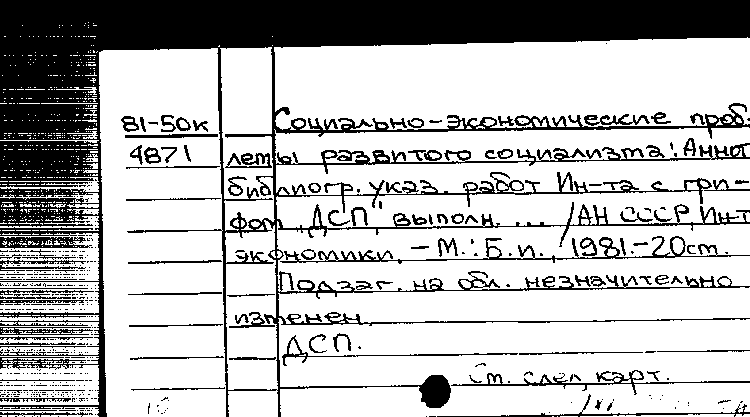 81-50к Социально-экономические проб-
4871 лемы развитого социализма: Аннот
библиогр. указ. работ Ин-та с гри-
фом „ДСП", выполн. ... /АН СССР, Ин-т
экономики. – М.: Б.и., 1981.-20см.
Подзаг. на обл. незначительно
изменен.
ДСП.
См. след. карт.